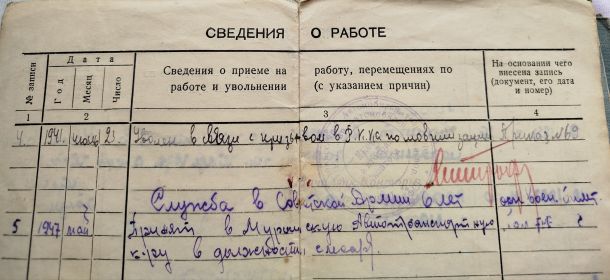 СВЕДЕНИЯ О РАБОТЕ
№ записи
Дата
Год
Месяц
Число
Сведения о приеме на работу, перемещениях по
работе и увольнении (с указанием причин)
На основании чего
внесена запись
(документ, его дата
и номер)
1 2 3 4
4. 1941 июль 23 Уволен в связи с призывом в Р.К.К.А по мобилизации Приказ №69
Служба в Советской Армии 6 лет
воен. билет
5 1947 май Принят в Муромскую Автотранспортную
к-ру в должности слесаря